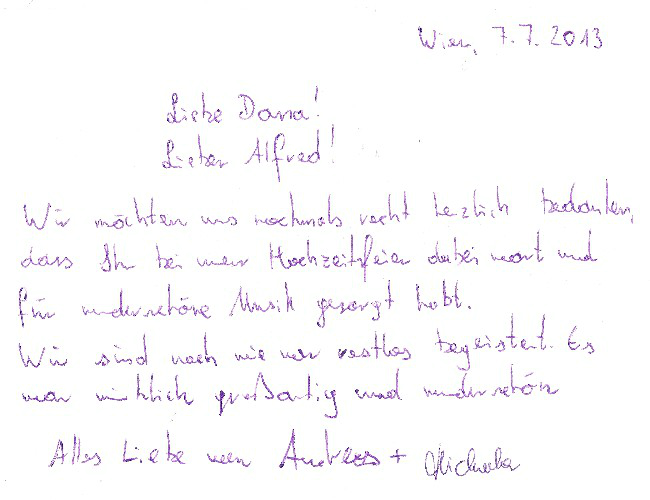 Wien, 7.7.2013
Liebe Dana!
Lieber Alfred!
Wir möchten uns nochmals recht herzlich bedanken,
dass Ihr bei unserer Hochzeitsfeier dabei wart und
für wunderschöne Musik gesorgt habt.
Wir sind nach wie vor restlos begeistert. Es
war wirklich großartig und wunderschön
Alles Liebe von Andreas + Michaela